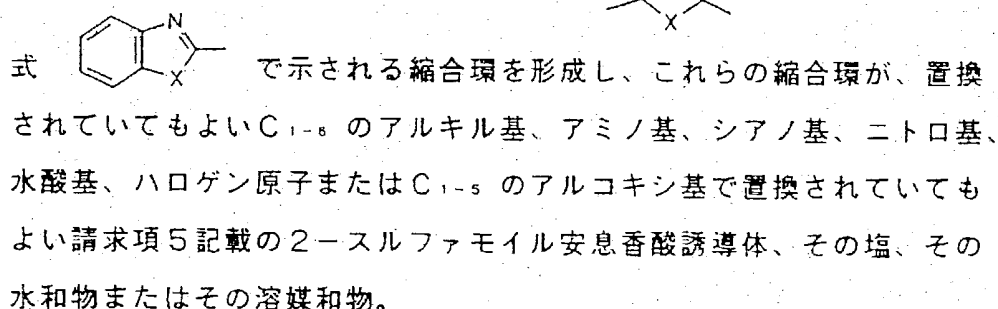 X
式 N X で示される縮合環を形成し、これらの縮合環が、置換
されていてもよいC1-6 のアルキル基、アミノ基、シアノ基、ニトロ基、
水酸基、ハロゲン原子またはC1-5 のアルコキシ基で置換されていても
よい請求項5記載の2-スルファモイル安息香酸誘導体、その塩、その
水和物またはその溶媒和物。